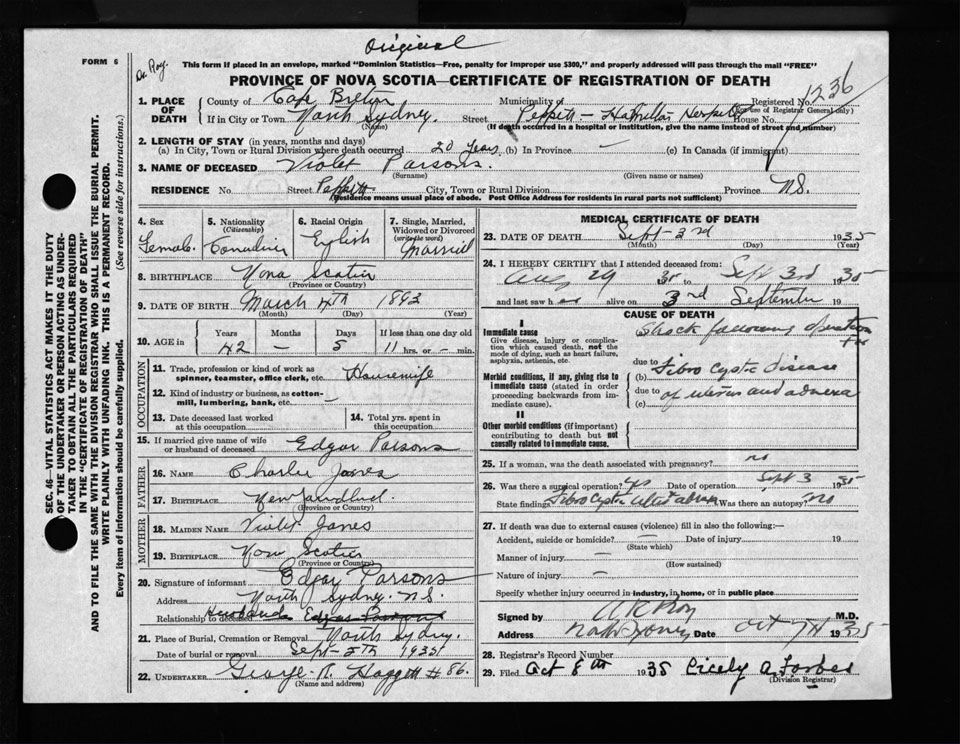 Original
FORM 6
Dr. Roy.
This form if placed in an envelope, marked "Dominion Statistics—Free, penalty for improper use $300," and properly addressed will pass through the mail "FREE"
PROVINCE OF NOVA SCOTIA—CERTIFICATE OF REGISTRATION OF DEATH
1236
1. PLACE OF DEATH County of Cape Breton Municipality of Registered No.
(For use of Registrar General only)
If in City or Town North Sydney. Street Peppett – Hamilton House No.
(Name) (If death occurred in a hospital or institution, give the name instead of street and number)
2. LENGTH OF STAY (in years, months and days)
(a) In City, Town or Rural Division where death occurred 20 years (b) In Province — (c) In Canada (if immigrant)
3. NAME OF DECEASED Violet Parsons.
(Surname) (Given name or names)
RESIDENCE No. Street Peppett City, Town or Rural Division Province N.S.
(Residence means usual place of abode. Post Office Address for residents in rural parts not sufficient)
4. Sex Female
5. Nationality (Citizenship) Canadian
6. Racial Origin English
7. Single, Married, Widowed or Divorced (write the word) Married
8. BIRTHPLACE Nova Scotia
(Province or Country)
9. DATE OF BIRTH March 4th 1893
(Month) (Day) (Year)
10. AGE in Years Months Days If less than one day old
42 — 5 11 hrs. or — min.
OCCUPATION
11. Trade, profession or kind of work as spinner, teamster, office clerk, etc. Housewife
12. Kind of industry or business, as cotton-mill, lumbering, bank, etc. —
13. Date deceased last worked at this occupation
14. Total yrs. spent in this occupation
15. If married give name of wife or husband of deceased Edgar Parsons
FATHER
16. NAME Charlie Janes
17. BIRTHPLACE Newfoundland.
(Province or Country)
MOTHER
18. MAIDEN NAME Violet Janes
19. BIRTHPLACE Nova Scotia
(Province or Country)
20. Signature of informant Edgar Parsons
Address North Sydney. N.S.
Relationship to deceased Husband Edgar Parsons
21. Place of Burial, Cremation or Removal North Sydney.
Date of burial or removal Sept- 5th 1935
22. UNDERTAKER George R. Haggett #86.
(Name and address)
MEDICAL CERTIFICATE OF DEATH
23. DATE OF DEATH Sept- 3rd 1935
(Month) (Day) (Year)
24. I HEREBY CERTIFY that I attended deceased from:
Aug 29 35 to Sept 3rd 1935
and last saw h er alive on 3rd September 19
CAUSE OF DEATH
I
Immediate cause
Give disease, injury or complication which caused death, not the mode of dying, such as heart failure, asphyxia, asthenia, etc.
Shock following operation
due to
Morbid conditions, if any, giving rise to immediate cause (stated in order proceeding backwards from immediate cause).
(b) Fibro Cystic disease
due to of uterus and adnexa
(c)
II
Other morbid conditions (if important) contributing to death but not causally related to immediate cause.
25. If a woman, was the death associated with pregnancy? no
26. Was there a surgical operation? yes Date of operation Sept 3 1935
State findings Fibro Cystic Was there an autopsy? no
27. If death was due to external causes (violence) fill in also the following:—
Accident, suicide or homicide? — Date of injury 19
(State which)
Manner of injury —
(How sustained)
Nature of injury —
Specify whether injury occurred in industry, in home, or in public place
Signed by A K Roy M.D.
Address North Sydney Date Oct 7th 1935
28. Registrar's Record Number
29. Filed Oct 8th 1935 Cicely A. Forbes
(Division Registrar)
SEC. 46—VITAL STATISTICS ACT MAKES IT THE DUTY
OF THE UNDERTAKER OR PERSON ACTING AS UNDER-
TAKER TO OBTAIN ALL THE PARTICULARS REQUIRED
IN THE "CERTIFICATE OF REGISTRATION OF DEATH"
AND TO FILE THE SAME WITH THE DIVISION REGISTRAR WHO SHALL ISSUE THE BURIAL PERMIT.
WRITE PLAINLY WITH UNFADING INK. THIS IS A PERMANENT RECORD.
Every item of information should be carefully supplied. (See reverse side for instructions.)